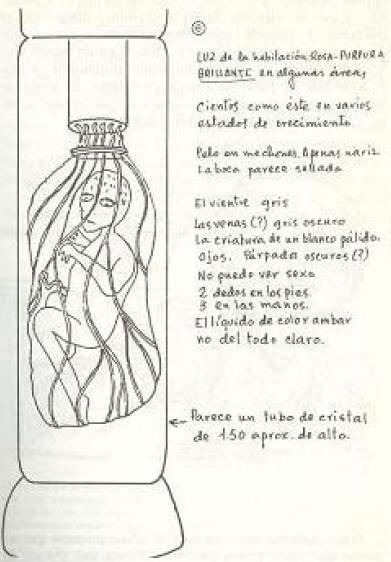 ⑥
LUZ de la habitación ROSA-PURPURA
BRILLANTE en algunas áreas
Cientos como éste en varios
estados de crecimiento
Pelo en mechones. Apenas nariz
La boca parece sellada
El vientre gris
Las venas (?) gris oscuro
La criatura de un blanco pálido.
Ojos. Párpado oscuros (?)
No puedo ver sexo
2 dedos en los pies.
3 en las manos.
El líquido de color ambar
no del todo claro.
← Parece un tubo de cristal
de 1.50 aprox. de alto.